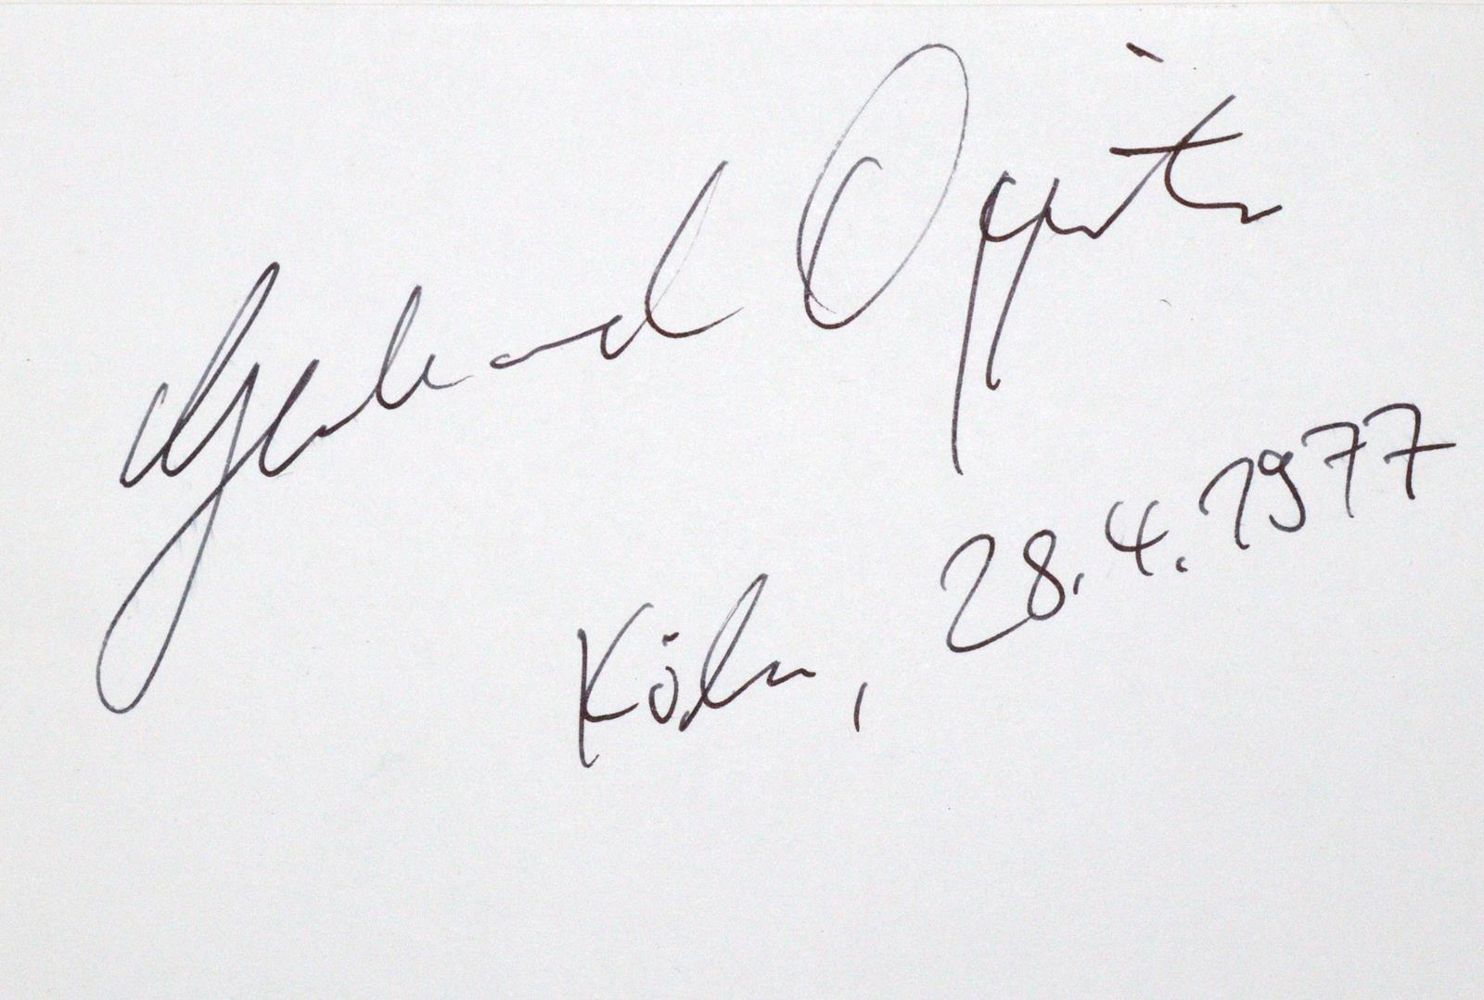 Gerhard Oppitz
Köln, 28.4.1977